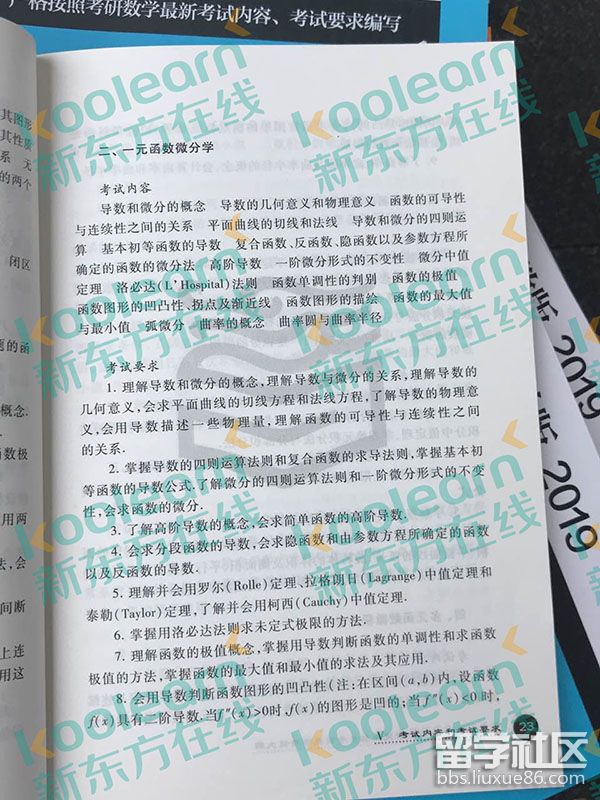 格按照考研数学最新考试内容、考试要求编写
其图形
其性质
系 无
的两个
闭区
题的函
概念.
函数极
用两
法,会
间断
上连
用这
二、一元函数微分学
考试内容
导数和微分的概念 导数的几何意义和物理意义 函数的可导性
与连续性之间的关系 平面曲线的切线和法线 导数和微分的四则运
算 基本初等函数的导数 复合函数、反函数、隐函数以及参数方程所
确定的函数的微分法 高阶导数 一阶微分形式的不变性 微分中值
定理 洛必达(L'Hospital)法则 函数单调性的判别 函数的极值
函数图形的凹凸性、拐点及渐近线 函数图形的描绘 函数的最大值
与最小值 弧微分 曲率的概念 曲率圆与曲率半径
考试要求
1. 理解导数和微分的概念,理解导数与微分的关系,理解导数的
几何意义,会求平面曲线的切线方程和法线方程,了解导数的物理意
义,会用导数描述一些物理量,理解函数的可导性与连续性之间
的关系.
2. 掌握导数的四则运算法则和复合函数的求导法则,掌握基本初
等函数的导数公式.了解微分的四则运算法则和一阶微分形式的不变
性,会求函数的微分.
3. 了解高阶导数的概念,会求简单函数的高阶导数.
4. 会求分段函数的导数,会求隐函数和由参数方程所确定的函数
以及反函数的导数.
5. 理解并会用罗尔(Rolle)定理、拉格朗日(Lagrange)中值定理和
泰勒(Taylor)定理,了解并会用柯西(Cauchy)中值定理.
6. 掌握用洛必达法则求未定式极限的方法.
7. 理解函数的极值概念,掌握用导数判断函数的单调性和求函数
极值的方法,掌握函数的最大值和最小值的求法及其应用.
8. 会用导数判断函数图形的凹凸性(注:在区间(a,b)内,设函数
f(x)具有二阶导数.当f″(x)>0时,f(x)的图形是凹的;当f″(x)<0时,
V 考试内容和考试要求 23
版 2019
版 2019
koolearn
新东方在线
koolearn
新东方在线
koolearn
新东方在线
koolearn
新东方在线
koolearn
新东方在线
koolearn
新东方在线
留学社区
bbs.liuxue86.com